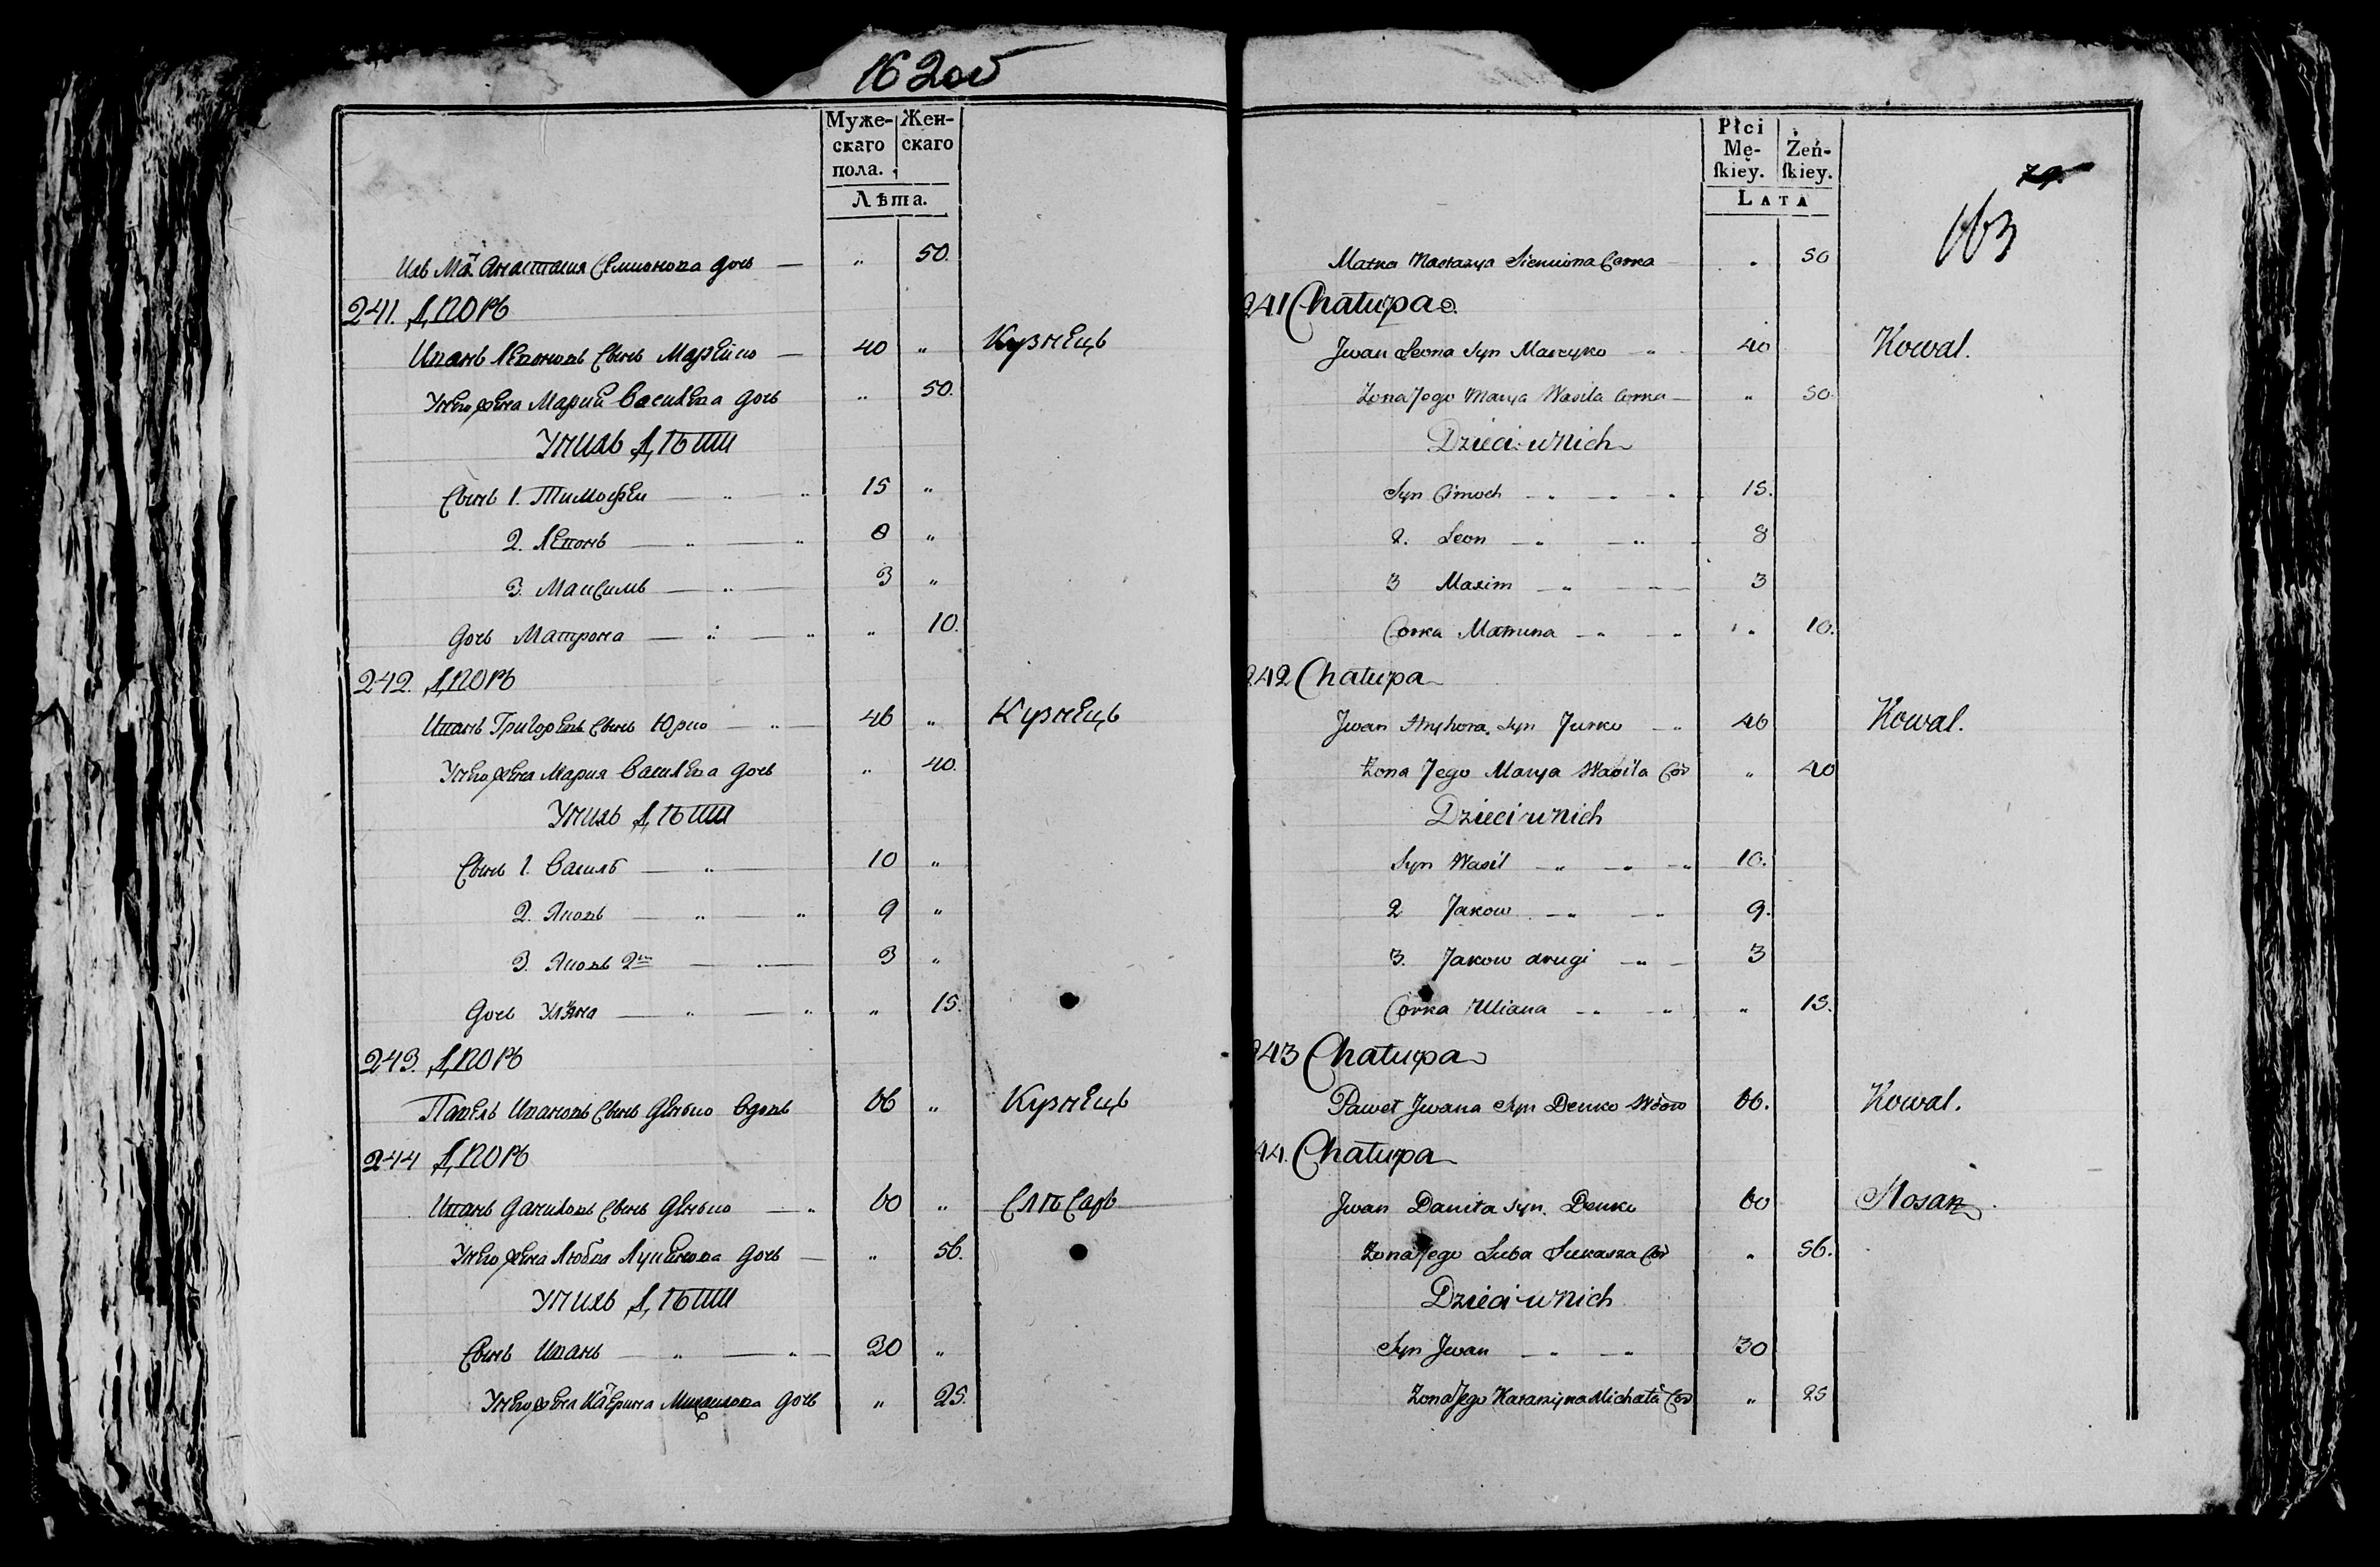 162об
Муже-
скаго
пола.
Жен-
скаго
Лѣта.
Ихъ Мат̃ Анастасия Семионова дочь — „ 50.
241. ДВОРЪ
Иванъ Левоновъ сынъ Марейко — 40 „ Кузнецъ
У него жена Марии Васильева дочь „ 50.
У нихъ Дѣти
Сынъ 1. Тимофеи — „ — „ 15 „
2. Левонъ — „ — „ 8 „
3. Максимъ — „ — 3 „
дочь Матрона — „ — „ „ 10.
242. ДВОРЪ
Иванъ Григоревъ сынъ Юрко — „ — 46 „ Кузнецъ
У него жена Мария Васильева дочь „ 40.
У нихъ Дѣти
Сынъ 1. Василь — „ — 10 „
2. Яковъ — „ — „ 9 „
3. Яковъ 2й — „ — 3 „
дочь Ульяна — „ — „ „ 15.
243. ДВОРЪ
Павелъ Ивановъ сынъ Денько вдовъ 66 „ Кузнецъ
244 ДВОРЪ
Иванъ Даниловъ сынъ Денько — „ 60 „ Слѣсарь
У него жена Любва дочь — „ 56.
У нихъ Дѣти
Сынъ Иванъ — „ — „ — 30 „
У него жена Кат̃ерина Михаилова дочь „ 25.
Płci
Mę-
ſkiey.
Żeń-
ſkiey.
LATA
79.
163
Matka Nastazya Siemiona Corka „ 50
241 Chałupa
Jwan Leona Syn Mareyko — „ 40 Kowal.
Zona Jego Marya Wasila Corka — „ 50.
Dzieci u Nich
Syn Cimoch — „ — „ — „ 15.
2. Leon — „ — „ — 8
3 Maxim — „ — — 3
Corka Matruna — „ — „ „ 10.
242 Chałupa
Jwan Hryhora Syn Jurko — „ 46 Kowal.
Zona Jego Marya Wasila Cor „ 40
Dzieci u Nich
Syn Wasil — „ — „ — „ 10.
2 Jakow — „ — „ 9.
3. Jakow drugi — „ — 3
Corka Uliana — „ — „ „ 15.
243 Chałupa
Paweł Jwana Syn Denko Wdow 66. Kowal.
44. Chałupa
Jwan Daniła Syn Denko 60 Slosarz
Zona Jego Luba Łukasza Cor „ 56.
Dzieci u Nich
Syn Jwan — „ — „ 30
Zona Jego Katarzyna Michała Cor „ 25